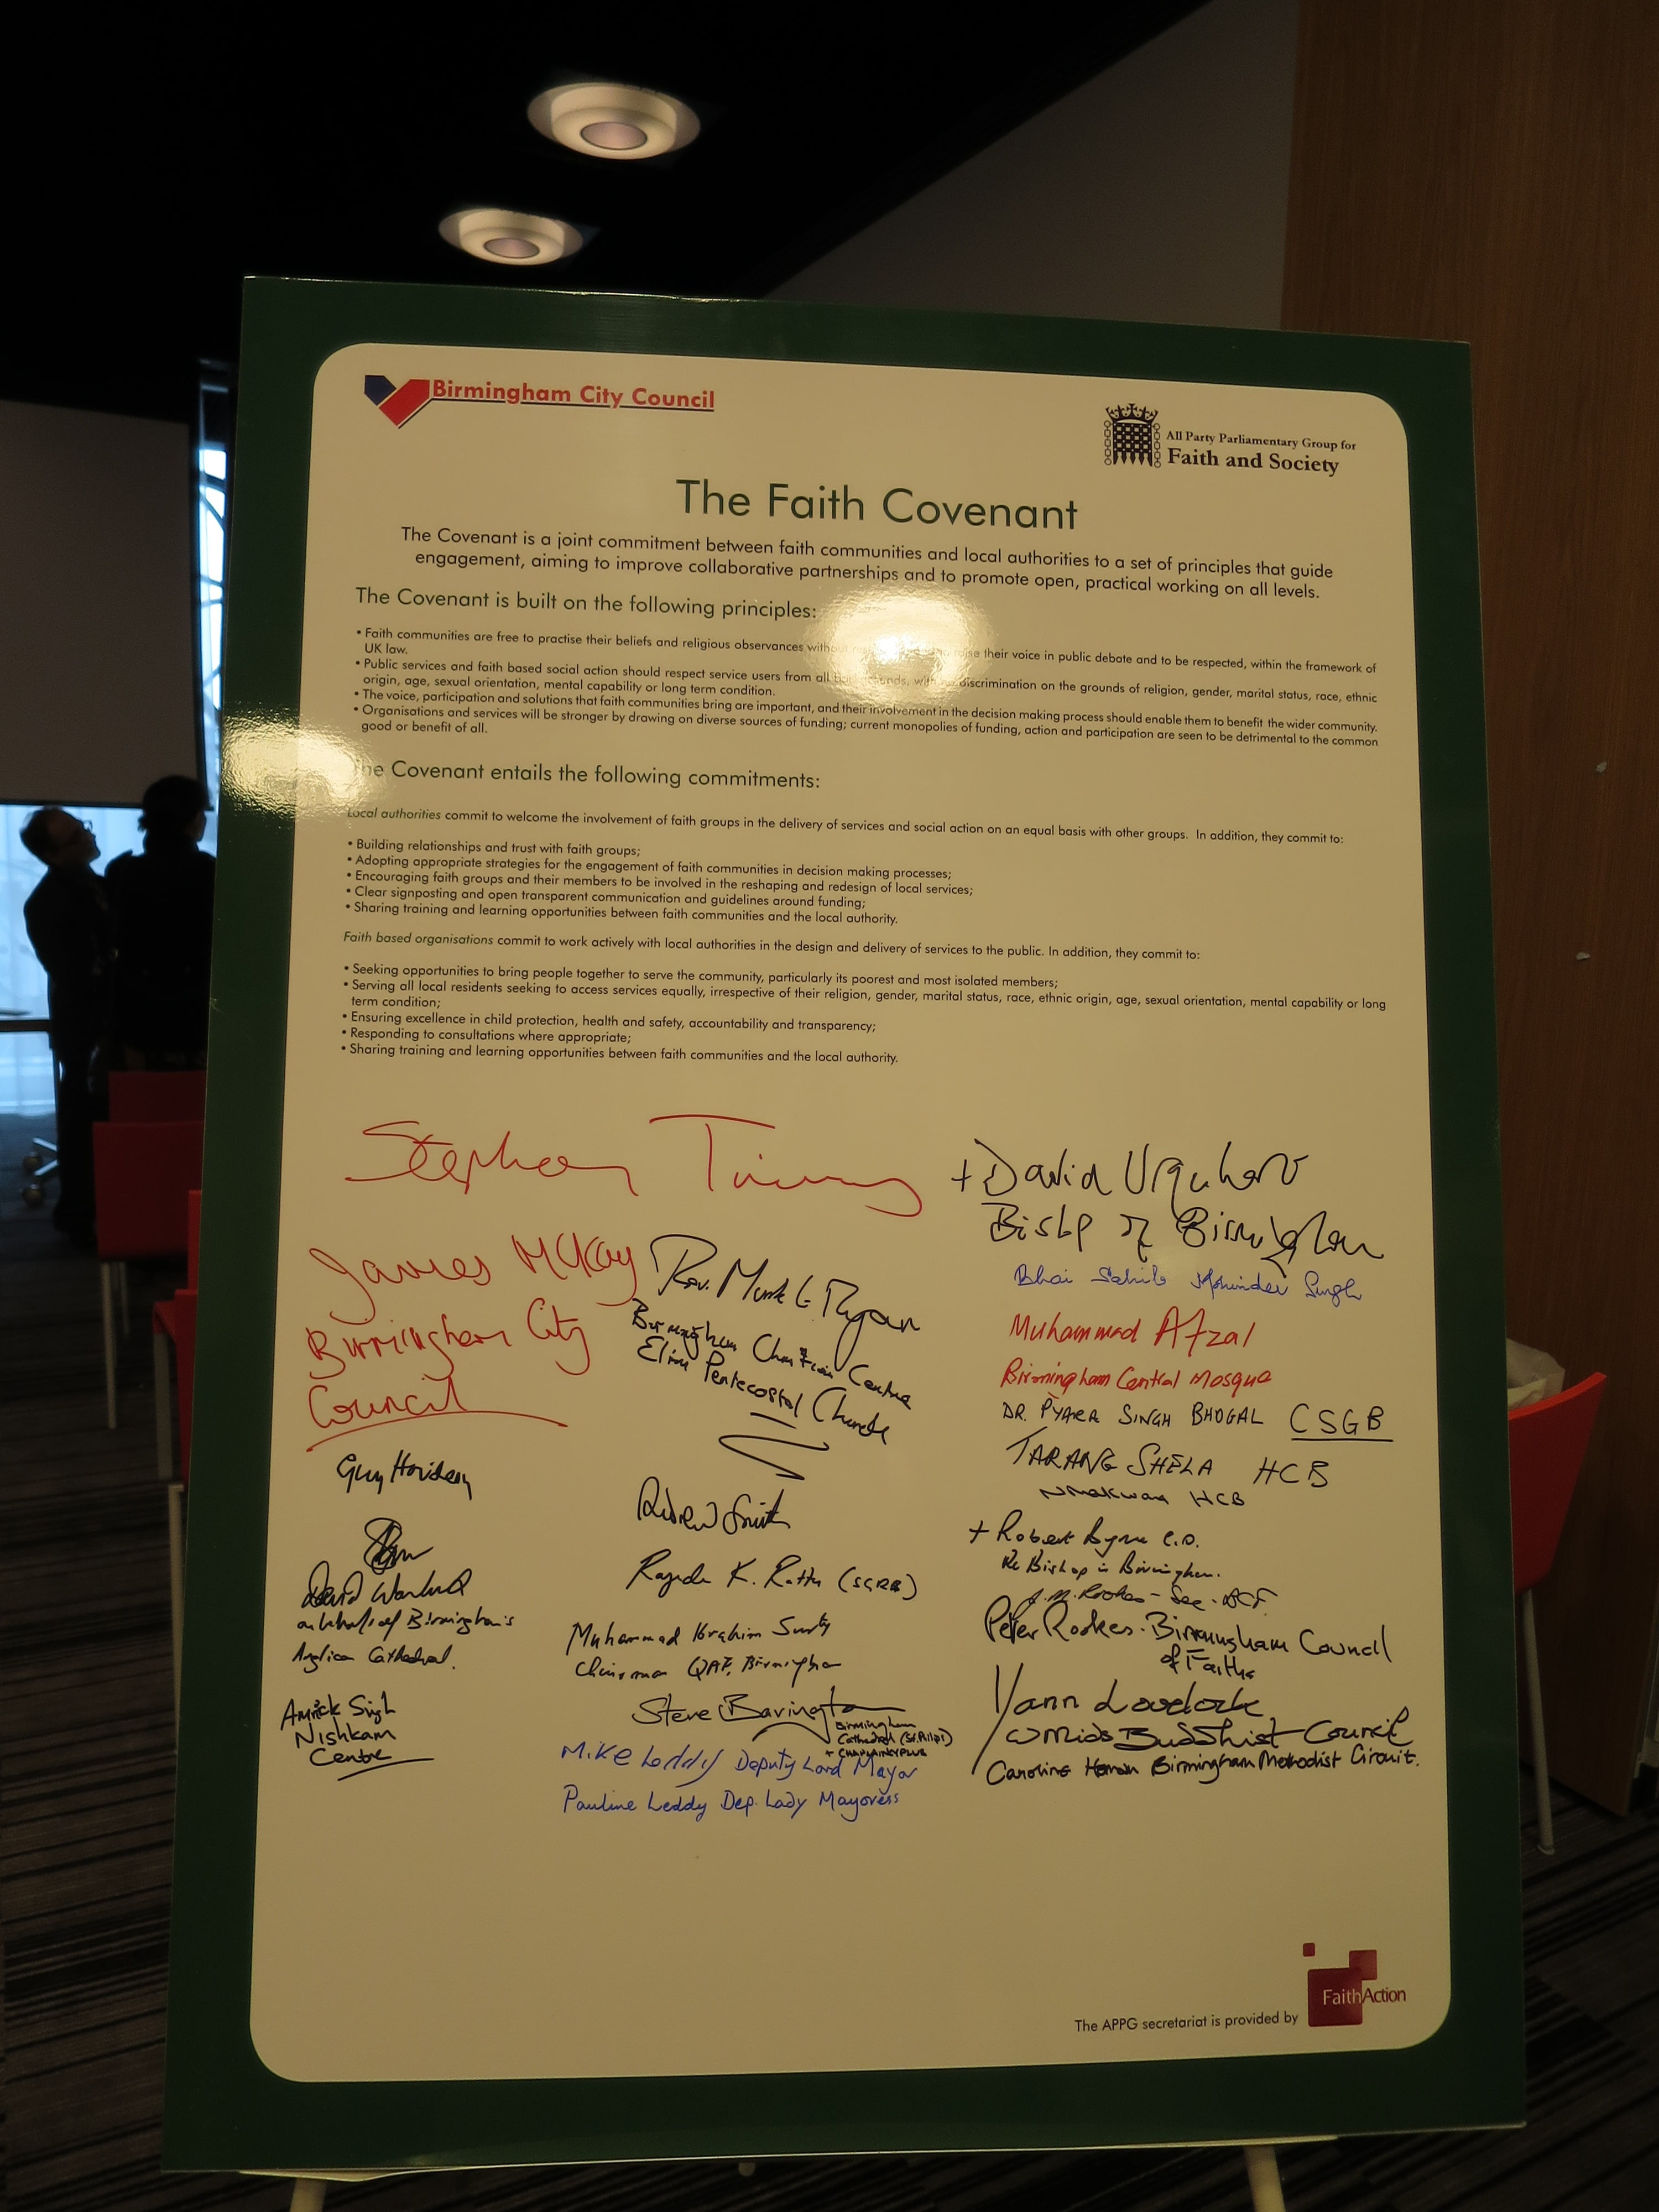 Birmingham City Council
All Party Parliamentary Group for
Faith and Society
The Faith Covenant
The Covenant is a joint commitment between faith communities and local authorities to a set of principles that guide
engagement, aiming to improve collaborative partnerships and to promote open, practical working on all levels.
The Covenant is built on the following principles:
• Faith communities are free to practise their beliefs and religious observances their voice in public debate and to be respected, within the framework of
UK law.
• Public services and faith based social action should respect service users from all discrimination on the grounds of religion, gender, marital status, race, ethnic
origin, age, sexual orientation, mental capability or long term condition.
• The voice, participation and solutions that faith communities bring are important, and their involvement in the decision making process should enable them to benefit the wider community.
• Organisations and services will be stronger by drawing on diverse sources of funding; current monopolies of funding, action and participation are seen to be detrimental to the common
good or benefit of all.
The Covenant entails the following commitments:
Local authorities commit to welcome the involvement of faith groups in the delivery of services and social action on an equal basis with other groups. In addition, they commit to:
• Building relationships and trust with faith groups;
• Adopting appropriate strategies for the engagement of faith communities in decision making processes;
• Encouraging faith groups and their members to be involved in the reshaping and redesign of local services;
• Clear signposting and open transparent communication and guidelines around funding;
• Sharing training and learning opportunities between faith communities and the local authority.
Faith based organisations commit to work actively with local authorities in the design and delivery of services to the public. In addition, they commit to:
• Seeking opportunities to bring people together to serve the community, particularly its poorest and most isolated members;
• Serving all local residents seeking to access services equally, irrespective of their religion, gender, marital status, race, ethnic origin, age, sexual orientation, mental capability or long
term condition;
• Ensuring excellence in child protection, health and safety, accountability and transparency;
• Responding to consultations where appropriate;
• Sharing training and learning opportunities between faith communities and the local authority.
Stephen Timms
James McKay
Birmingham City
Council
Guy Hordern
David
on behalf of Birmingham's
Anglican Cathedral.
Amrick Singh
Nishkam
Centre
Rev. Mark Ryan
Birmingham Christian Centre
Elim Pentecostal Church
Andrew Smith
K.
Muhammad Ibrahim Surty
Chairman QAF, Birmingham
Steve Bavington
Birmingham
Cathedral (St. Philip)
+ CHAPLAINCYPLUS
Mike Leddy Deputy Lord Mayor
Pauline Leddy Dep. Lady Mayoress
+ David Urquhart
Bishop of Birmingham
Bhai Sahib Mohinder Singh
Muhammad Afzal
Birmingham Central Mosque
DR. PYARA SINGH BHOGAL CSGB
TARANG SHELA HCB
HCB
+ Robert Byrne C.O.
RC Bishop in Birmingham.
Rookes - Sec.
Peter Rookes. Birmingham Council
of Faiths
Yann Lovelock
W Mids Buddhist Council
Caroline Homan Birmingham Methodist Circuit.
The APPG secretariat is provided by
FaithAction